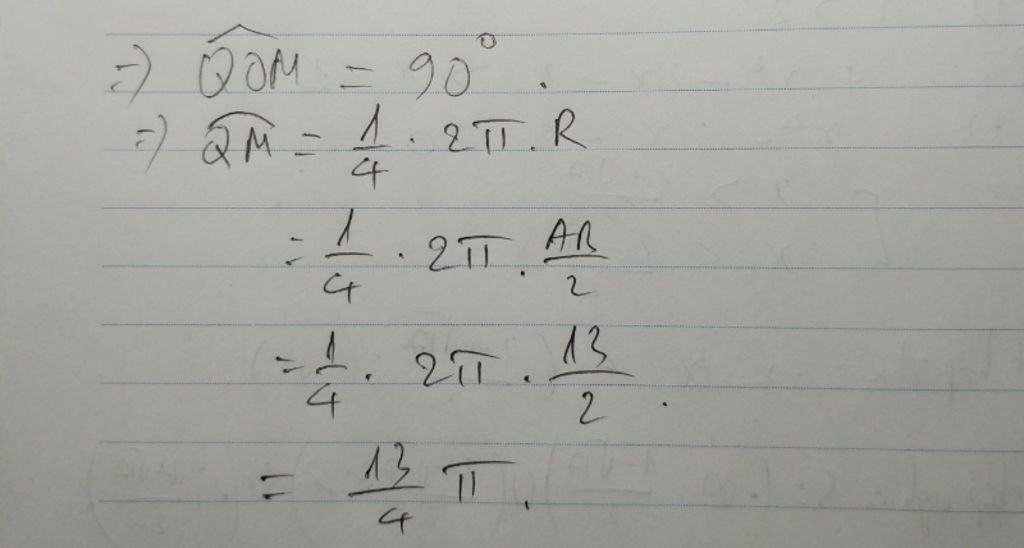 => \widehat{QOM} = 90°.
=> \overset{\frown}{QM} = \frac{1}{4} \cdot 2π . R
= \frac{1}{4} \cdot 2π . \frac{AB}{2}
= \frac{1}{4} \cdot 2π . \frac{13}{2} .
= \frac{13}{4} π .